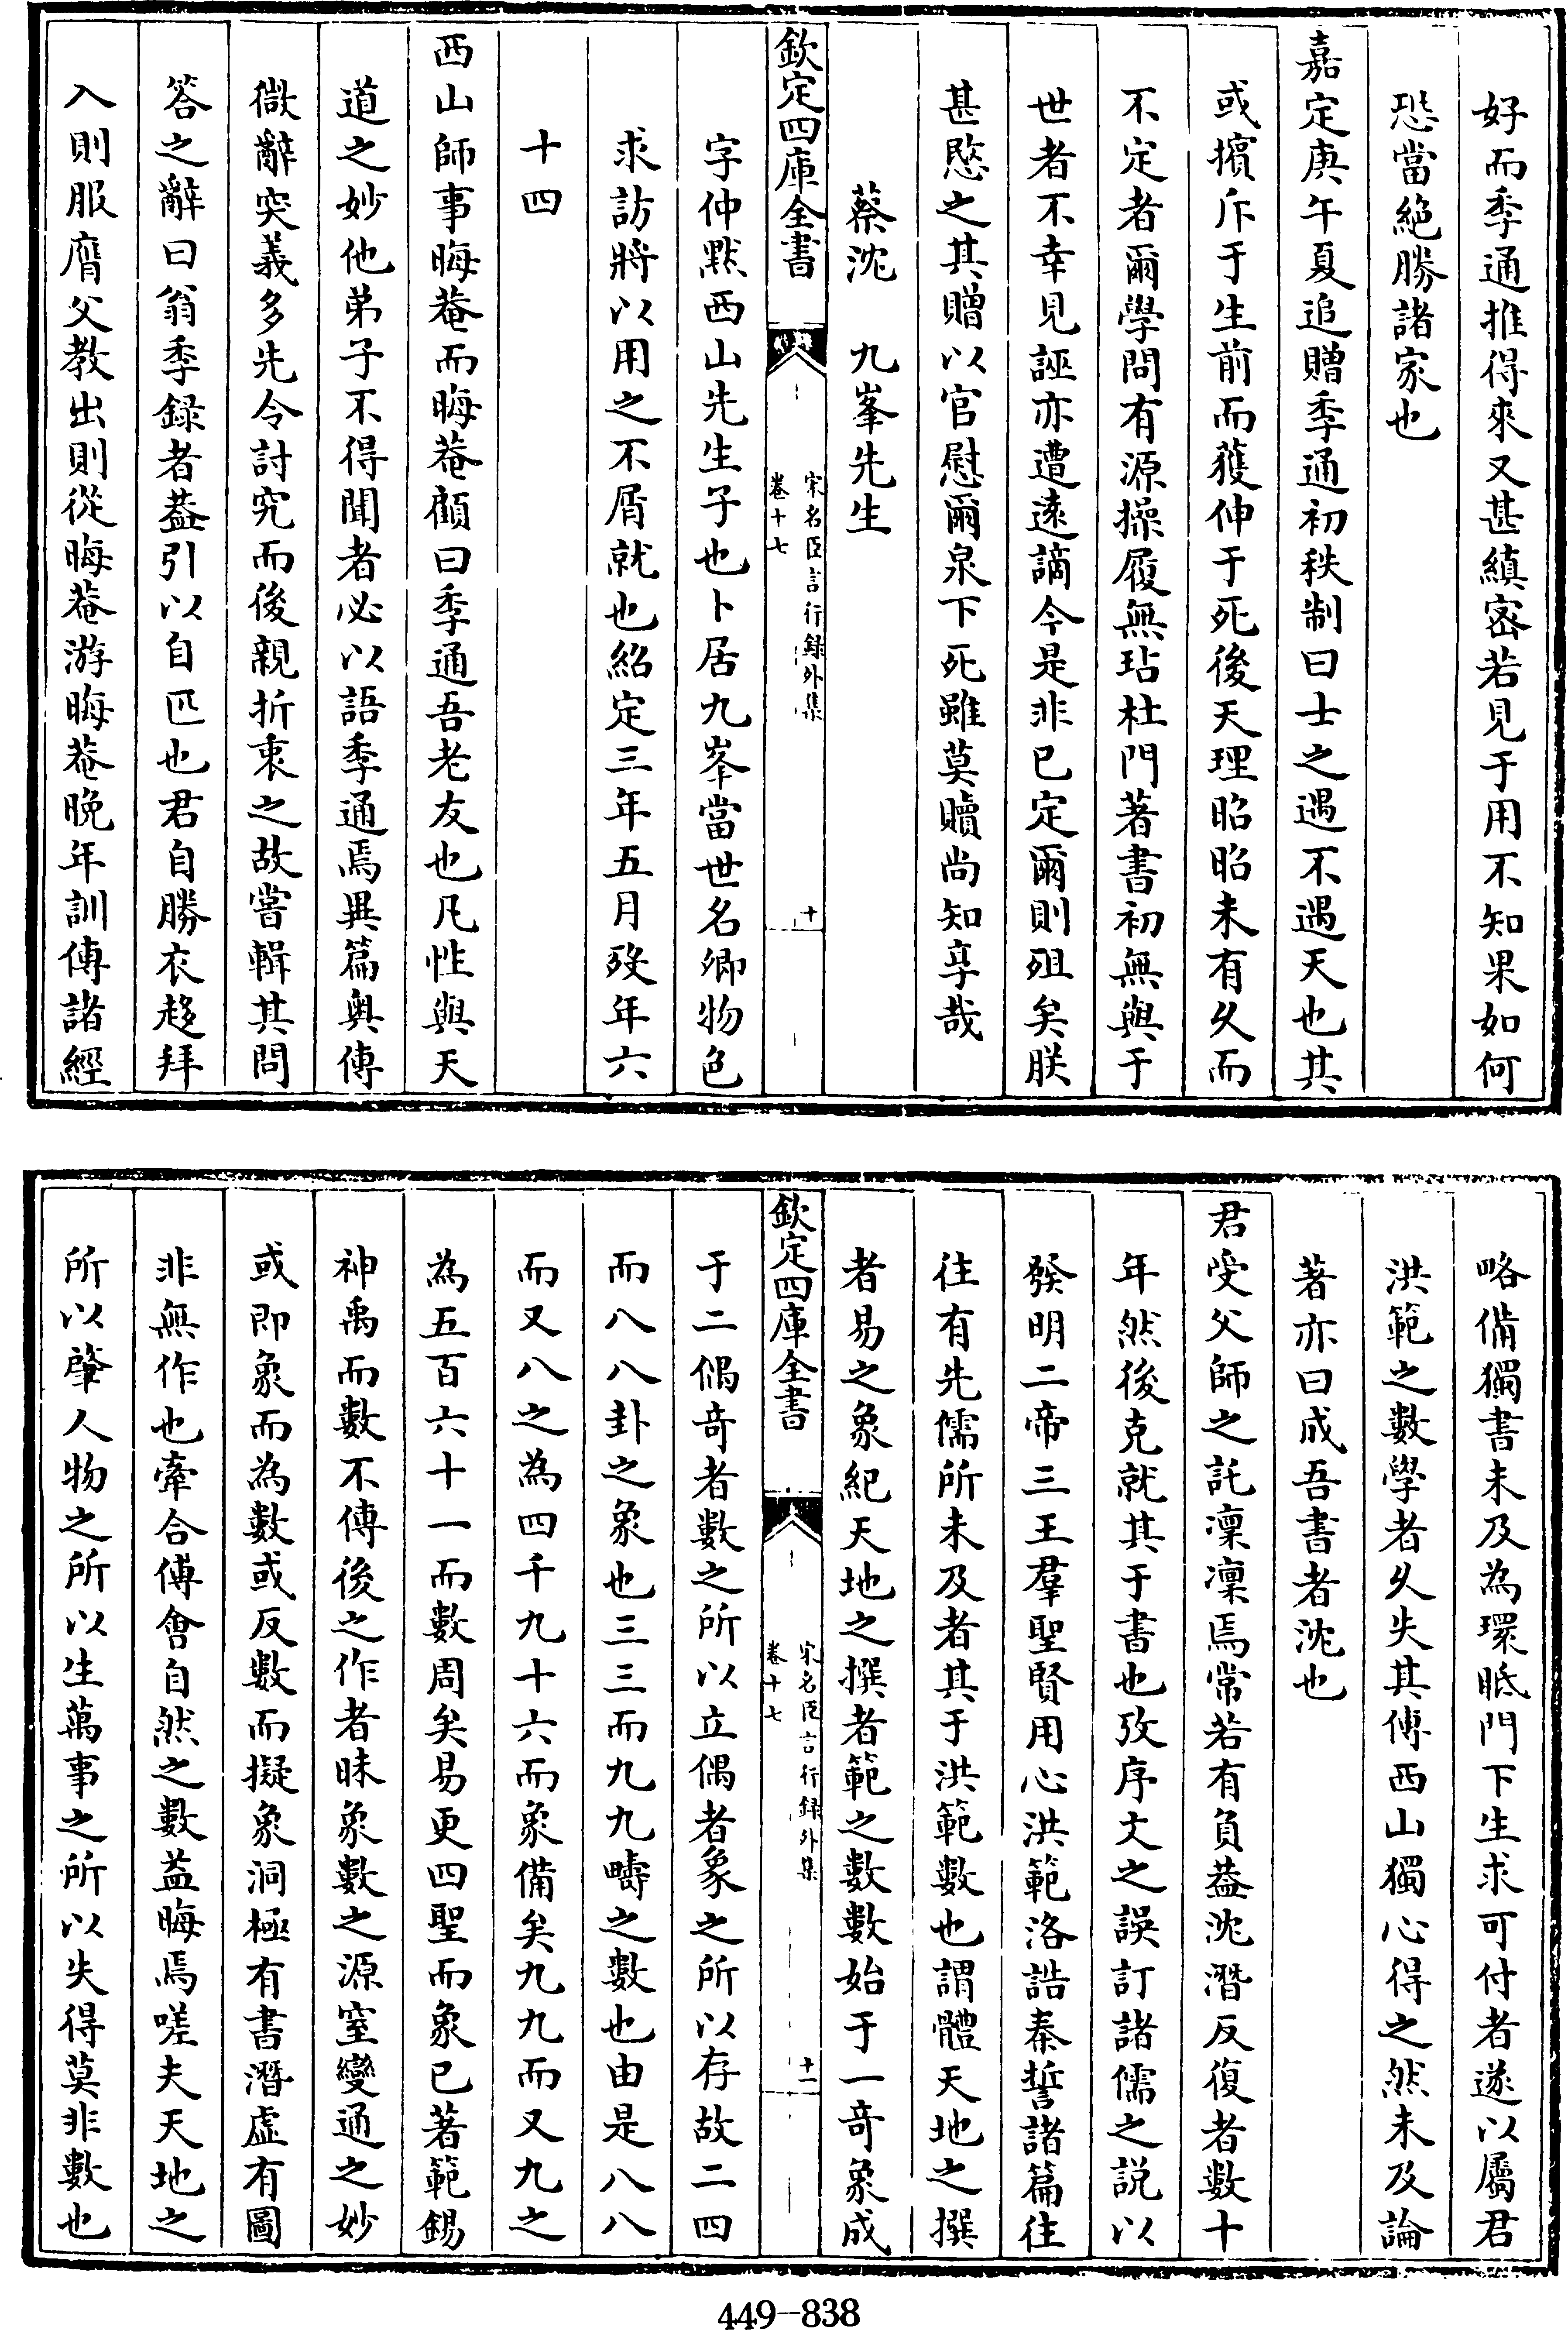 好而季通推得來又甚縝密若見于用不知果如何
恐當絶勝諸家也
嘉定庚午夏追贈季通初秩制曰士之遇不遇天也其
或擯斥于生前而獲伸于死後天理昭昭未有乆而
不定者爾學問有源操履無玷杜門著書初無與于
世者不幸見誣亦遭逺謫今是非已定爾則殂矣朕
甚愍之其贈以官慰爾泉下死雖莫贖尚知享哉
蔡沈　九峯先生
欽定四庫全書
宋名臣言行録外集
卷十七
十
字仲黙西山先生子也卜居九峯當世名卿物色
求訪將以用之不屑就也紹定三年五月歿年六
十四
西山師事晦菴而晦菴顧曰季通吾老友也凡性與天
道之妙他弟子不得聞者必以語季通焉異篇奥傳
微辭突義多先令討究而後親折衷之故嘗輯其問
答之辭曰翁季録者葢引以自匹也君自勝衣趍拜
入則服膺父教出則從晦菴游晦菴晚年訓傳諸經
略備獨書未及為環眡門下生求可付者遂以屬君
洪範之數學者乆失其傳西山獨心得之然未及論
著亦曰成吾書者沈也
君受父師之託凜凜焉常若有負葢沈潛反復者數十
年然後克就其于書也攷序文之誤訂諸儒之説以
發明二帝三王羣聖賢用心洪範洛誥秦誓諸篇往
往有先儒所未及者其于洪範數也謂體天地之撰
者易之象紀天地之撰者範之數數始于一竒象成
欽定四庫全書
宋名臣言行録外集
卷十七
十一
于二偶竒者數之所以立偶者象之所以存故二四
而八八卦之象也三三而九九疇之數也由是八八
而又八之為四千九十六而象備矣九九而又九之
為五百六十一而數周矣易更四聖而象已著範錫
神禹而數不傳後之作者昧象數之源窒變通之妙
或即象而為數或反數而擬象洞極有書潛虚有圖
非無作也牽合傅會自然之數益晦焉嗟夫天地之
所以肇人物之所以生萬事之所以失得莫非數也
449-838